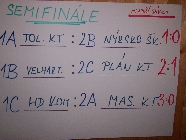 SEMIFINÁLE
1A TOL. KT : 2B NÝRSKO ŠK. 1:0
1B VELHART. : 2C PLÁN KT 2:1
1C HD KOM : 2A MAS. KT 3:0